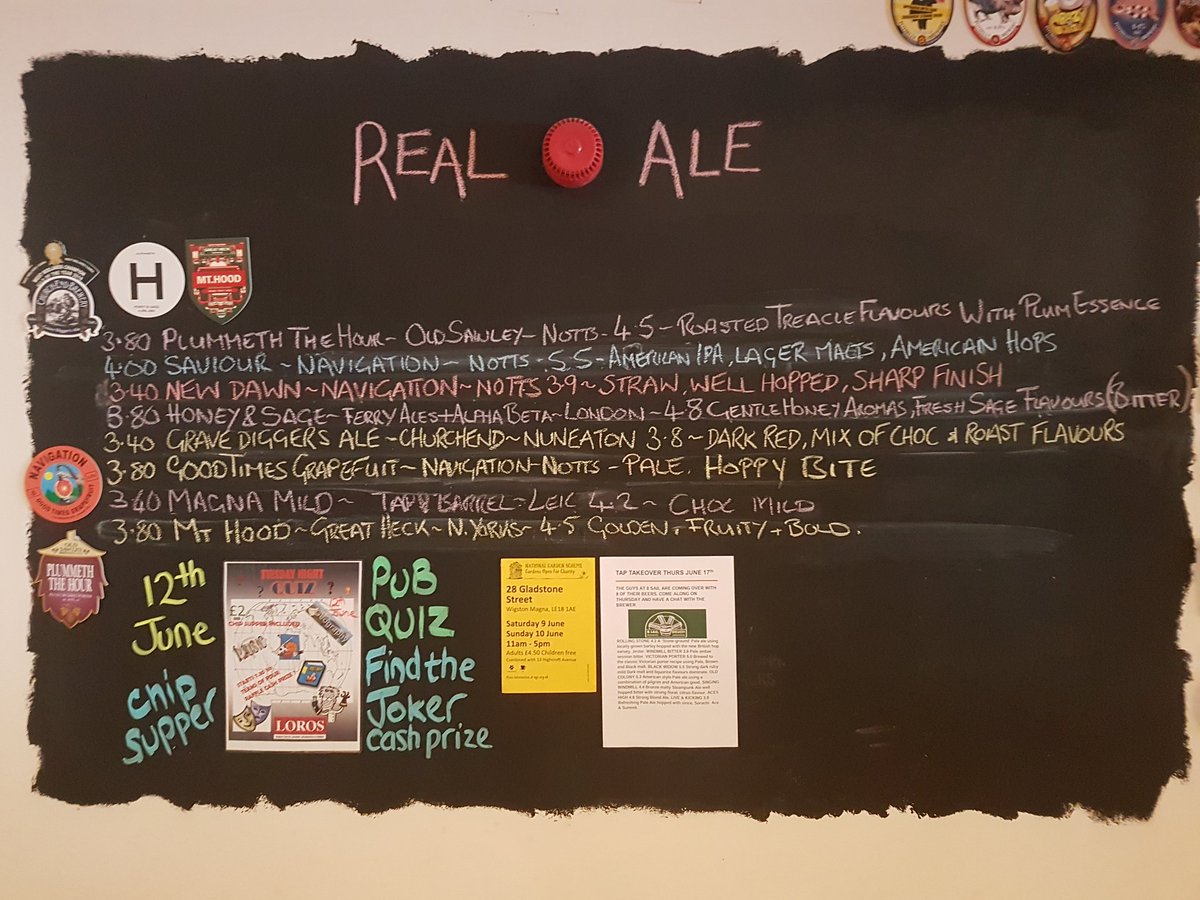 REAL ALE
H
MT.HOOD
3.80 PLUMMETH THE HOUR~ OLD SAWLEY~NOTTS- 4.5 - ROASTED TREACLE FLAVOURS WITH PLUM ESSENCE
4.00 SAVIOUR ~ NAVIGATION ~ NOTTS .5.5- AMERICAN IPA, LAGER MALTS, AMERICAN HOPS
3.40 NEW DAWN ~NAVIGATION~ NOTTS 3.9 ~ STRAW, WELL HOPPED, SHARP FINISH
3.80 HONEY & SAGE~ FERRY ALES + ALPHA BETA~LONDON ~ 4.8 GENTLE HONEY AROMAS, FRESH SAGE FLAVOURS (BITTER)
3.40 GRAVE DIGGERS ALE ~CHURCHEND~NUNEATON 3.8 ~ DARK RED, MIX OF CHOC & ROAST FLAVOURS
3.80 GOODTIMES GRAPEFUIT~ NAVIGATION-NOTTS - PALE. HOPPY BITE
3.60 MAGNA MILD ~ BARREL~LEIC 4.2 ~ CHOC MILD
3.80 MT HOOD~GREAT HECK~N.YORKS~ 4.5 GOLDEN, FRUITY + BOLD.
NAVIGATION
GOOD TIMES GRAPEFRUIT
PLUMMETH
THE HOUR
12th
June
chip
supper
TUESDAY NIGHT
? QUIZ ?
£2
CHIP SUPPER INCLUDED
LOROS
PUB
QUIZ
Find the
Joker
cash prize
NATIONAL GARDEN SCHEME
Gardens Open For Charity
28 Gladstone
Street
Wigston Magna, LE18 1AE
Saturday 9 June
Sunday 10 June
11am - 5pm
Adults £4.50 Children free
Combined with 13 Highcroft Avenue
TAP TAKEOVER THURS JUNE 17th
THE GUYS AT 8 SAIL ARE COMING OVER WITH
8 OF THEIR BEERS. COME ALONG ON
THURSDAY AND HAVE A CHAT WITH THE
BREWER